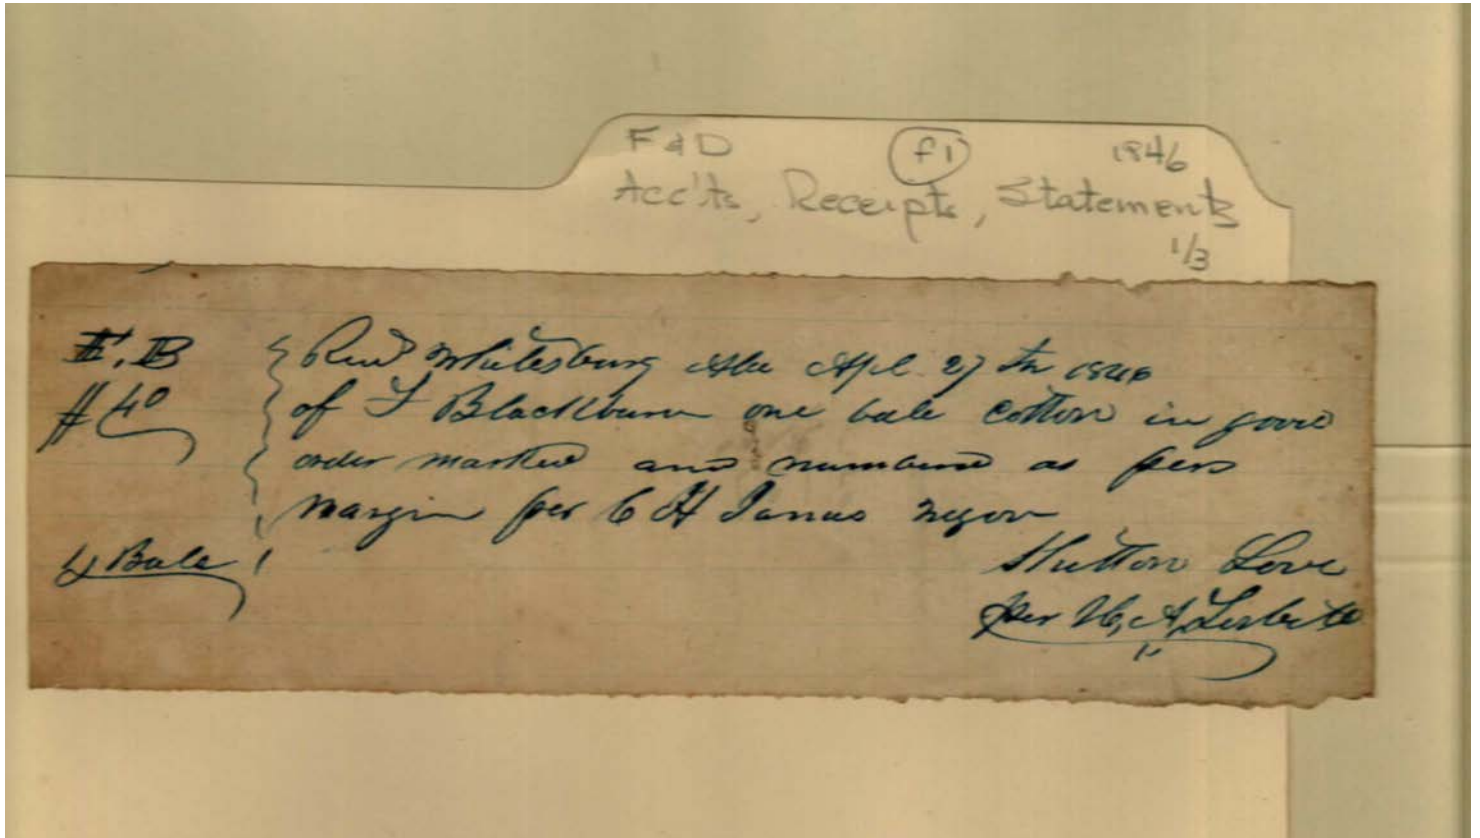 F & D (f1) 1846
Acc'ts, Receipts, Statements
1/3
F. B
# 40
1 Bale
Recd Whitesburg Ala Apl 27th 1846
of F Blackburn one bale cotton in good
order marked and numbered as per
margin per C H
Shutton Love
per A